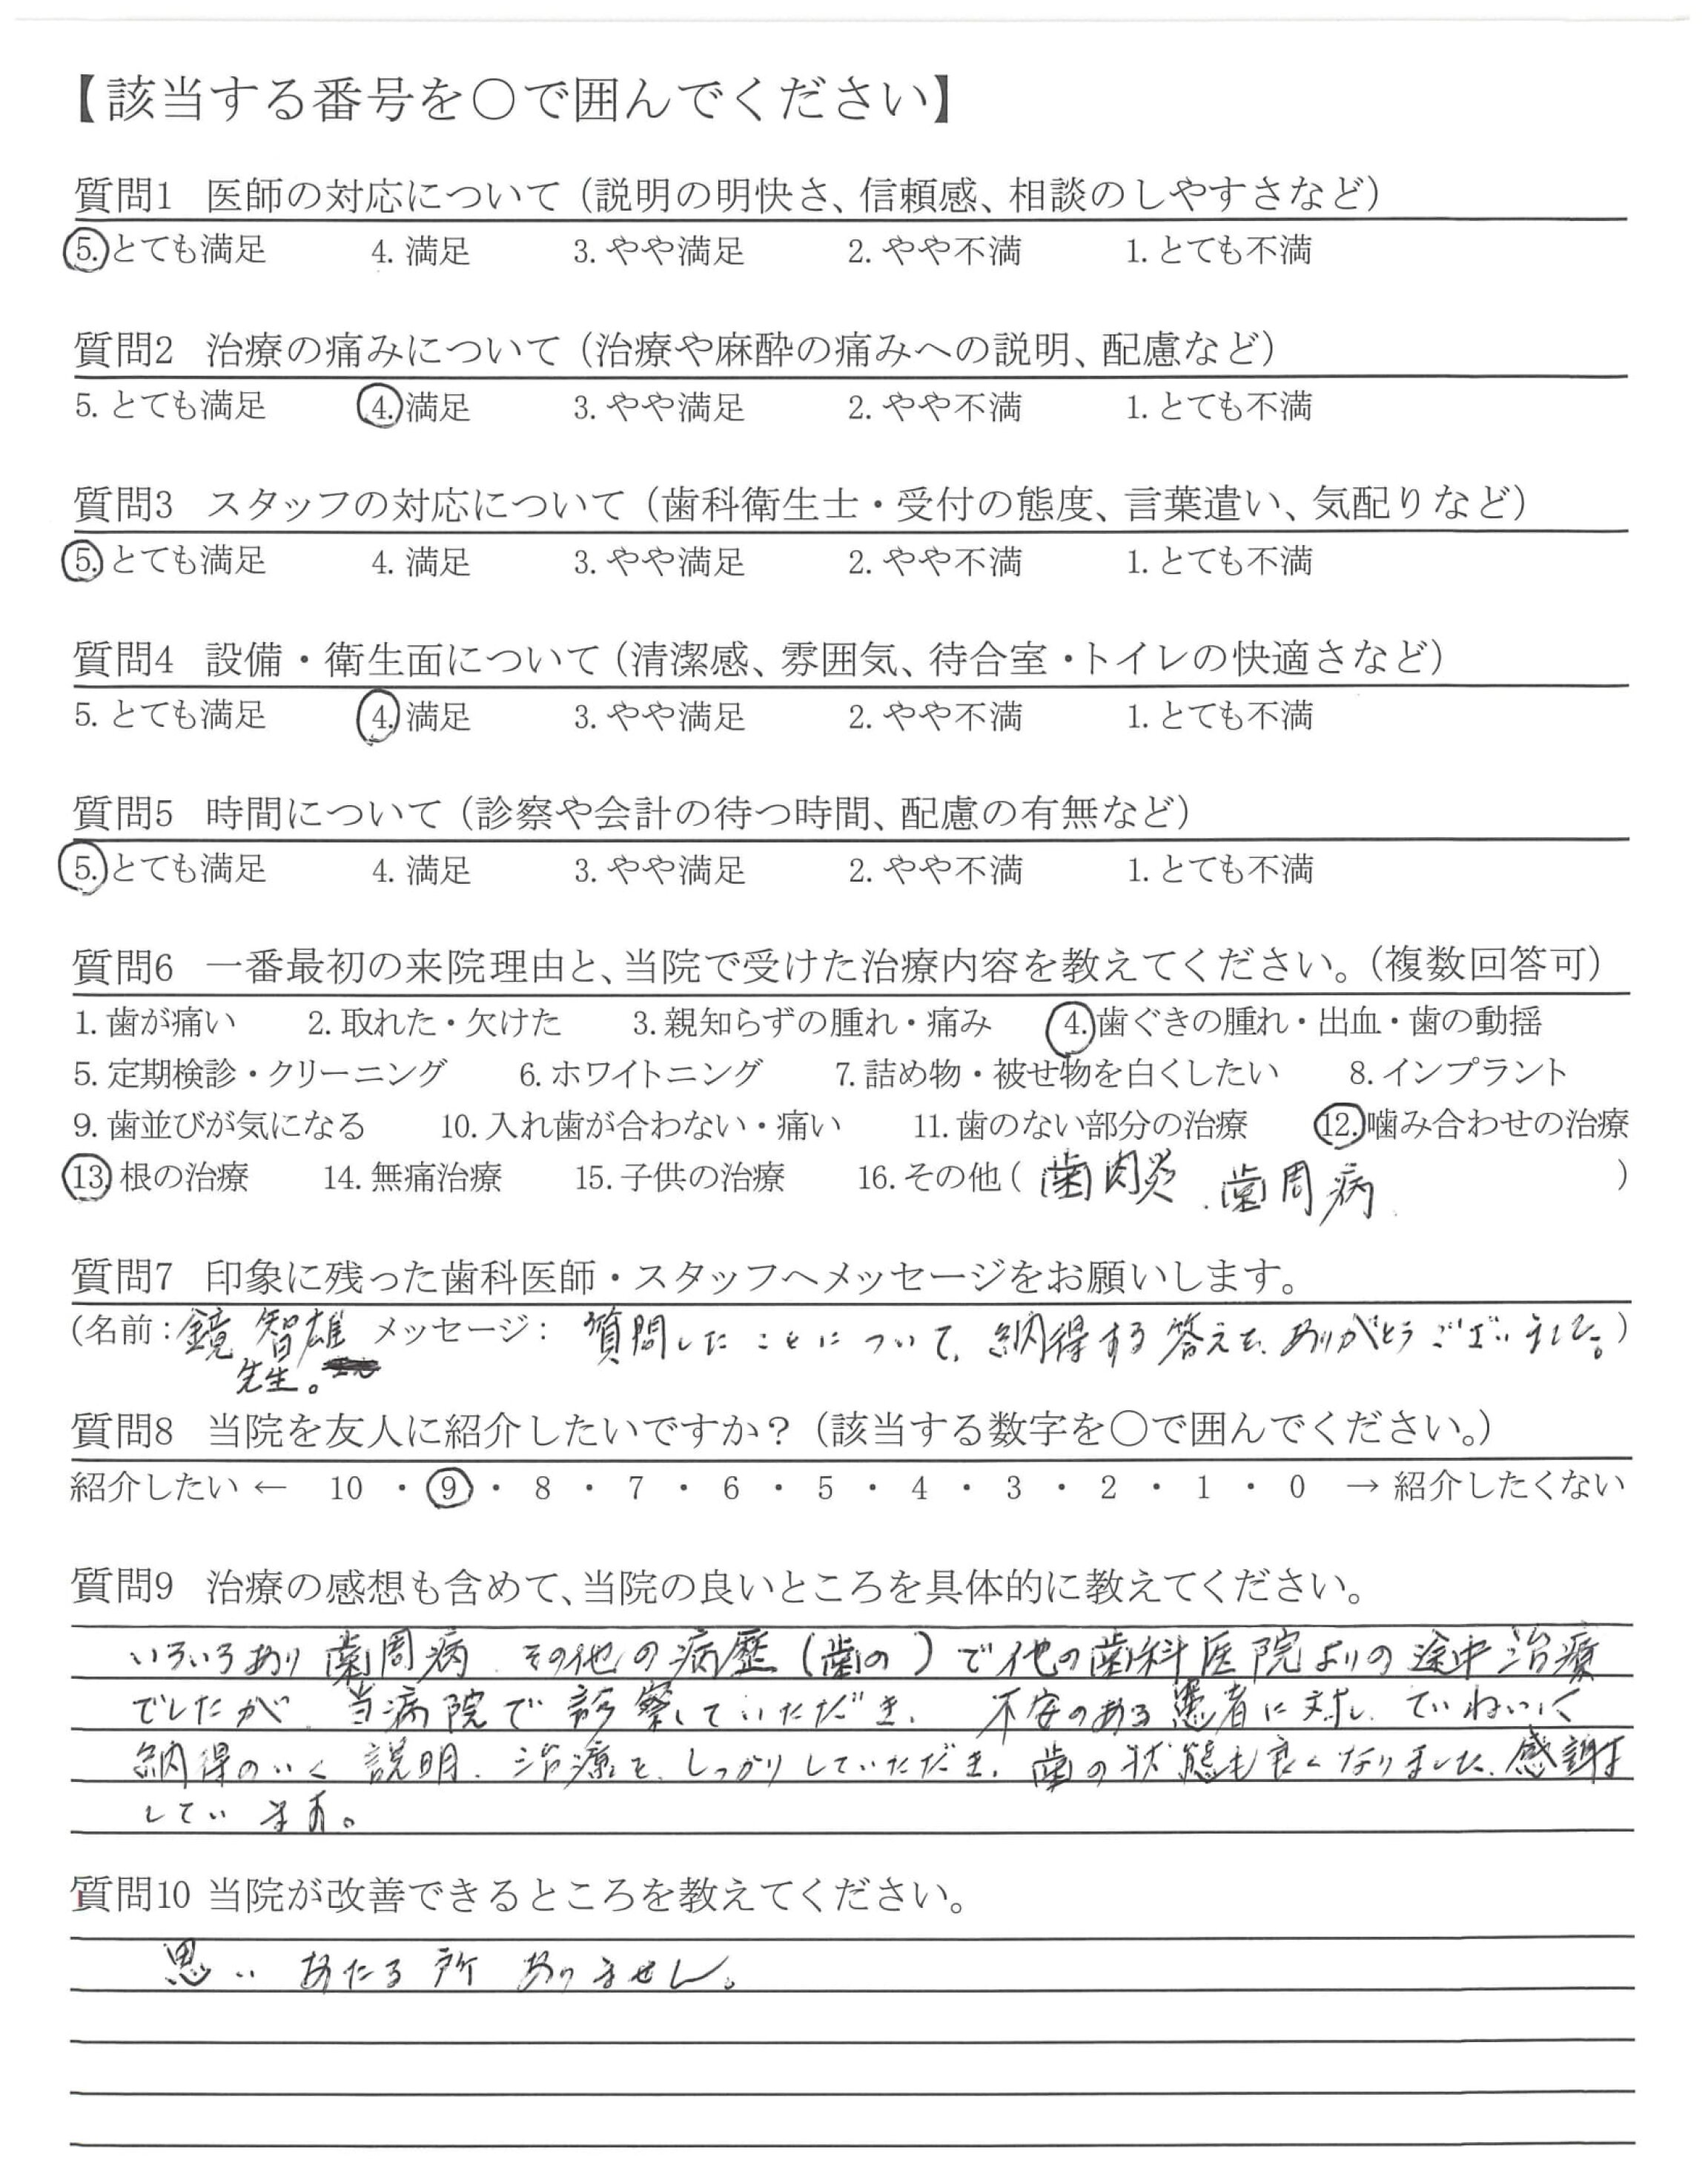 【該当する番号を○で囲んでください】
質問1 医師の対応について（説明の明快さ、信頼感、相談のしやすさなど）
5. とても満足 4. 満足 3. やや満足 2. やや不満 1. とても不満
質問2 治療の痛みについて（治療や麻酔の痛みへの説明、配慮など）
5. とても満足 4. 満足 3. やや満足 2. やや不満 1. とても不満
質問3 スタッフの対応について（歯科衛生士・受付の態度、言葉遣い、気配りなど）
5. とても満足 4. 満足 3. やや満足 2. やや不満 1. とても不満
質問4 設備・衛生面について（清潔感、雰囲気、待合室・トイレの快適さなど）
5. とても満足 4. 満足 3. やや満足 2. やや不満 1. とても不満
質問5 時間について（診察や会計の待つ時間、配慮の有無など）
5. とても満足 4. 満足 3. やや満足 2. やや不満 1. とても不満
質問6 一番最初の来院理由と、当院で受けた治療内容を教えてください。（複数回答可）
1. 歯が痛い 2. 取れた・欠けた 3. 親知らずの腫れ・痛み 4. 歯ぐきの腫れ・出血・歯の動揺
5. 定期検診・クリーニング 6. ホワイトニング 7. 詰め物・被せ物を白くしたい 8. インプラント
9. 歯並びが気になる 10. 入れ歯が合わない・痛い 11. 歯のない部分の治療 12. 噛み合わせの治療
13. 根の治療 14. 無痛治療 15. 子供の治療 16. その他（歯肉炎、歯周病）
質問7 印象に残った歯科医師・スタッフへメッセージをお願いします。
（名前：鏡 智雄 メッセージ： 質問したことについて、納得する答えを、ありがとうございました。）
先生。
質問8 当院を友人に紹介したいですか？（該当する数字を○で囲んでください。）
紹介したい ← 10 ・ 9 ・ 8 ・ 7 ・ 6 ・ 5 ・ 4 ・ 3 ・ 2 ・ 1 ・ 0 → 紹介したくない
質問9 治療の感想も含めて、当院の良いところを具体的に教えてください。
いろいろあり歯周病、その他の病歴（歯の）で他の歯科医院よりの途中治療
でしたが、当病院で診察していただき、不安のある患者に対し、ていねいに
納得のいく説明、治療を、しっかりしていただき、歯の状態も良くなりました、感謝
しています。
質問10 当院が改善できるところを教えてください。
思いあたる所ありません。